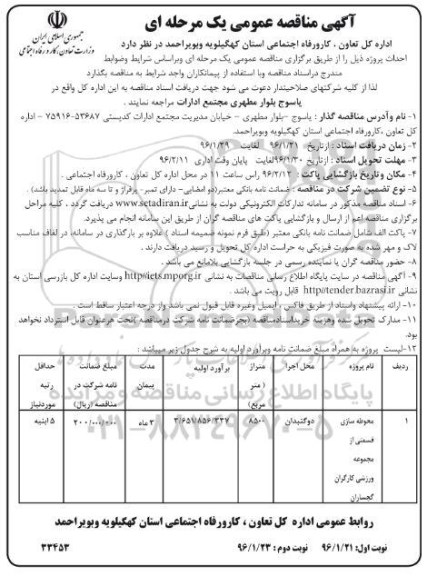 آگهی مناقصه عمومی یک مرحله ای
جمهوری اسلامی ایران
وزارت تعاون، کار و رفاه اجتماعی
اداره کل تعاون ، کارورفاه اجتماعی استان کهگیلویه وبویراحمد در نظر دارد
احداث پروژه ذیل را از طریق برگزاری مناقصه عمومی یک مرحله ای وبراساس شرایط وضوابط
مندرج دراسناد مناقصه وبا استفاده از پیمانکاران واجد شرایط به مناقصه بگذارد
لذا از کلیه شرکتهای صلاحیتدار دعوت می شود جهت دریافت اسناد مناقصه به این اداره کل واقع در
یاسوج بلوار مطهری مجتمع ادارات مراجعه نمایند .
۱- نام وآدرس مناقصه گذار : یاسوج -بلوار مطهری - خیابان مدیریت مجتمع ادارات کدپستی ۵۳۶۸۷-۷۵۹۱۶ - اداره
کل تعاون ،کارورفاه اجتماعی استان کهگیلویه وبویراحمد.
۲- زمان دریافت اسناد : ازتاریخ ۹۶/۱/۲۱ لغایت ۹۶/۱/۲۹
۳- مهلت تحویل اسناد : ازتاریخ ۹۶/۱/۳۰ لغایت پایان وقت اداری ۹۶/۲/۱۱
۴- مکان وتاریخ بازگشایی پاکت : ۹۶/۲/۱۲ راس ساعت ۱۱ در محل اداره کل تعاون ، کارورفاه اجتماعی .
۵- نوع تضمین شرکت در مناقصه : ضمانت نامه بانکی معتبر(دو امضایی- دارای تمبر- پرفراژ و تا سه ماه قابل تمدید باشد) .
۶- اسناد مناقصه مذکور در سامانه تدارکات الکترونیکی دولت به نشانی www.setadiran.ir دریافت گردد . کلیه مراحل
برگزاری مناقصه اعم از ارسال و بازگشایی پاکت های مناقصه گران از طریق این سامانه انجام می پذیرد.
۷- پاکت الف شامل ضمانت نامه بانکی معتبر (طبق فرم نمونه ضمیمه اسناد ) علاوه بر بارگذاری در سامانه، در لفاف مناسب
لاک و مهر شده به صورت فیزیکی به حراست اداره کل تحویل و رسید دریافت دارند .
۸- حضور مناقصه گران یا نماینده رسمی در جلسه بازگشایی بلامانع می باشد .
۹- آگهی مناقصه در سایت پایگاه اطلاع رسانی مناقصات به نشانی http//iets.mporg.ir وسایت اداره کل بازرسی استان به
نشانی http//tender.bazrasi.ir قابل رویت می باشد .
۱۰- ارائه پیشنهاد واسناد از طریق فاکس ، ایمیل وغیره قابل قبول نمی باشد واز درجه اعتبار ساقط است .
۱۱- مدارک تحویل شده وهزینه خریداسنادمناقصه (بجزضمانت نامه شرکت درمناقصه )تحت هرعنوان قابل استرداد نخواهد
بود.
۱۲-لیست پروژه به همراه مبلغ ضمانت نامه وبرآورد اولیه به شرح جدول زیر میباشد :
ردیف نام پروژه محل اجرا متراژ ( متر مربع) برآورد اولیه مدت پیمان مبلغ ضمانت نامه شرکت در مناقصه (ریال) حداقل رتبه موردنیاز
۱ محوطه سازی قسمتی از مجموعه ورزشی کارگران گچساران دوگنبدان ۸۵۰۰ ۳/۶۵۱/۸۵۶/۳۳۷ ۳ ماه ۲۰۰/۰۰۰/۰۰۰ ۵ ابنیه
روابط عمومی اداره کل تعاون ، کارورفاه اجتماعی استان کهگیلویه وبویراحمد
نوبت اول: ۹۶/۱/۲۱ نوبت دوم : ۹۶/۱/۲۳
۳۳۴۵۳